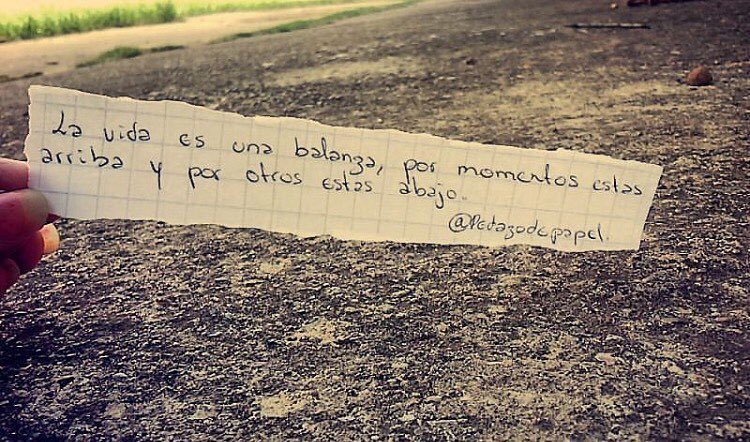 La vida es una balanza, por momentos estas
arriba y por otros estas abajo.
@Pedazodepapel.